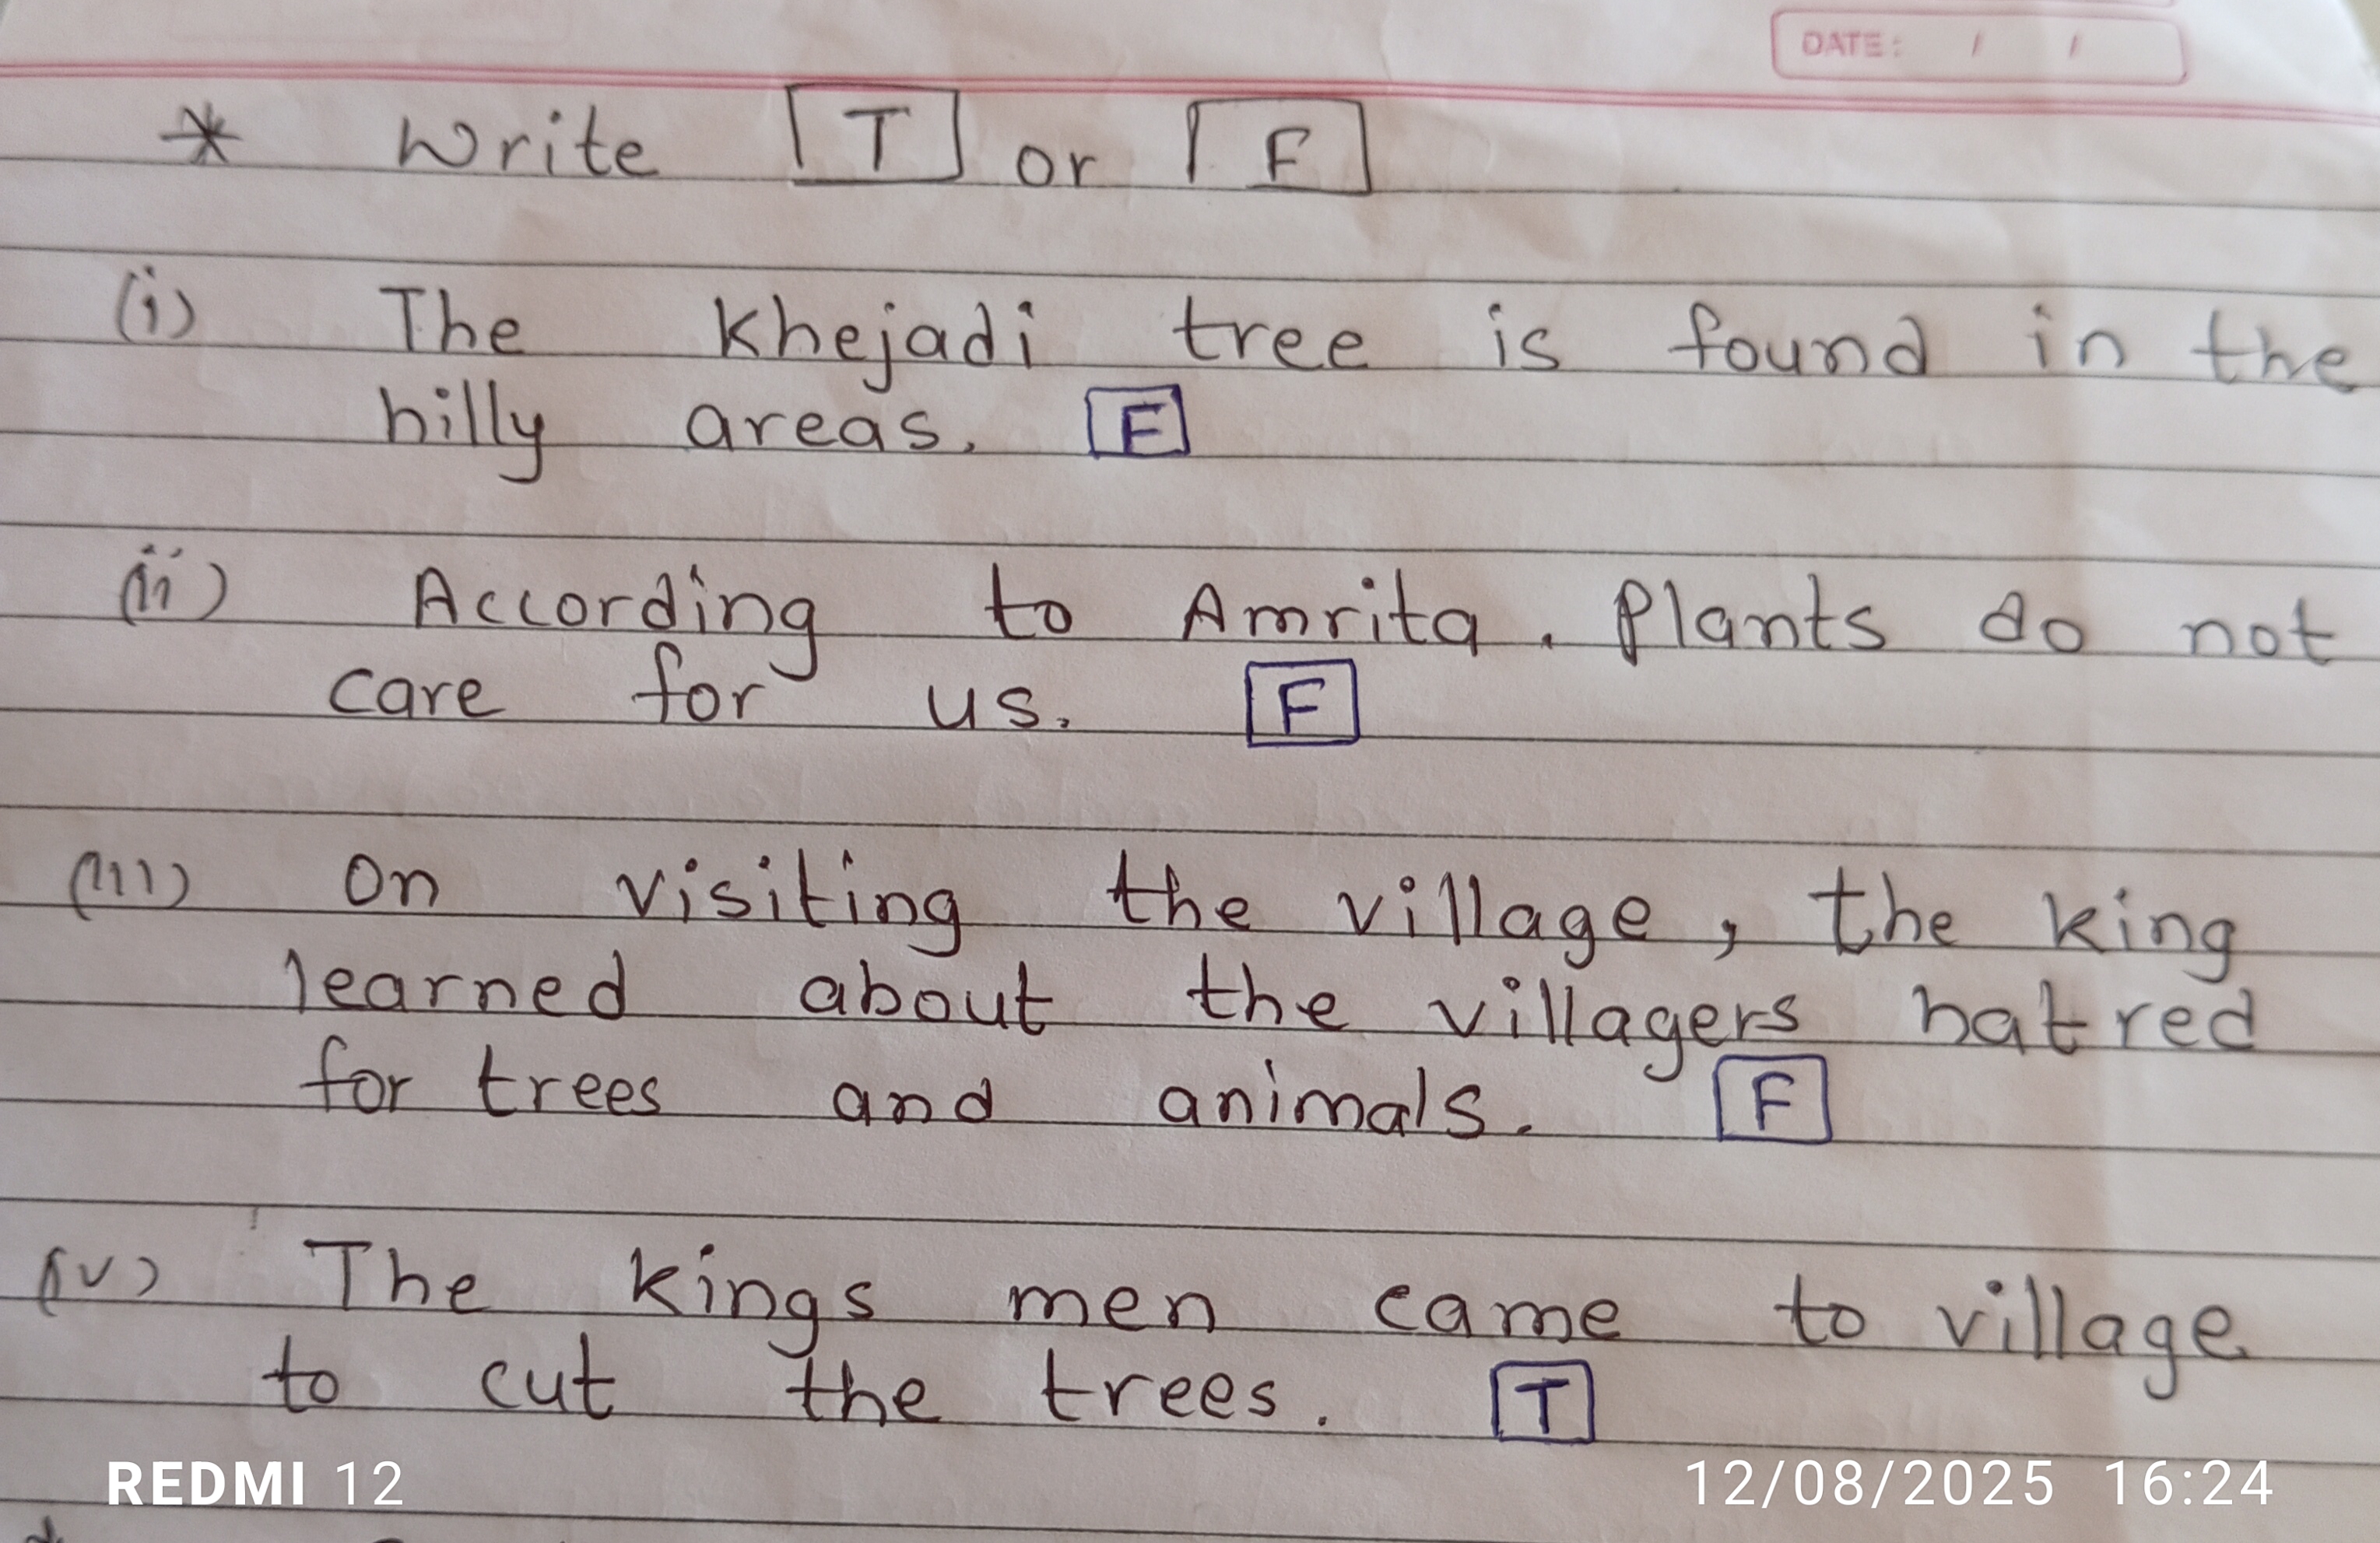 DATE: / /
* Write T or F
(i) The Khejadi tree is found in the
hilly areas. F
(ii) According to Amrita. Plants do not
care for us. F
(iii) On visiting the village, the king
learned about the villagers hatred
for trees and animals. F
(iv) The kings men came to village
to cut the trees. T
REDMI 12
12/08/2025 16:24